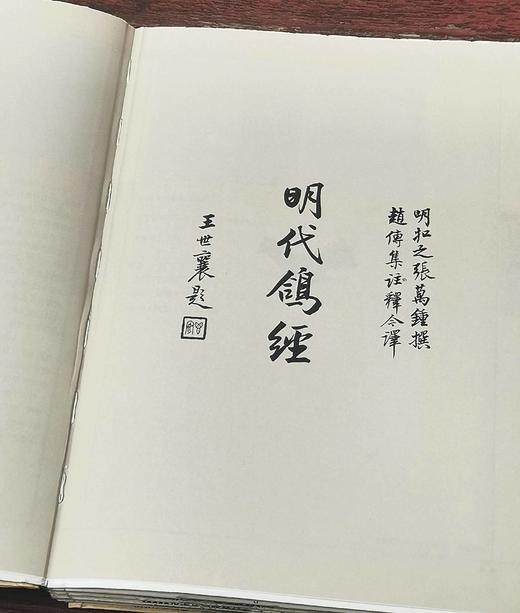 明扣之張萬鍾撰
趙傳集註釋今譯
明代鴿經
王世襄題